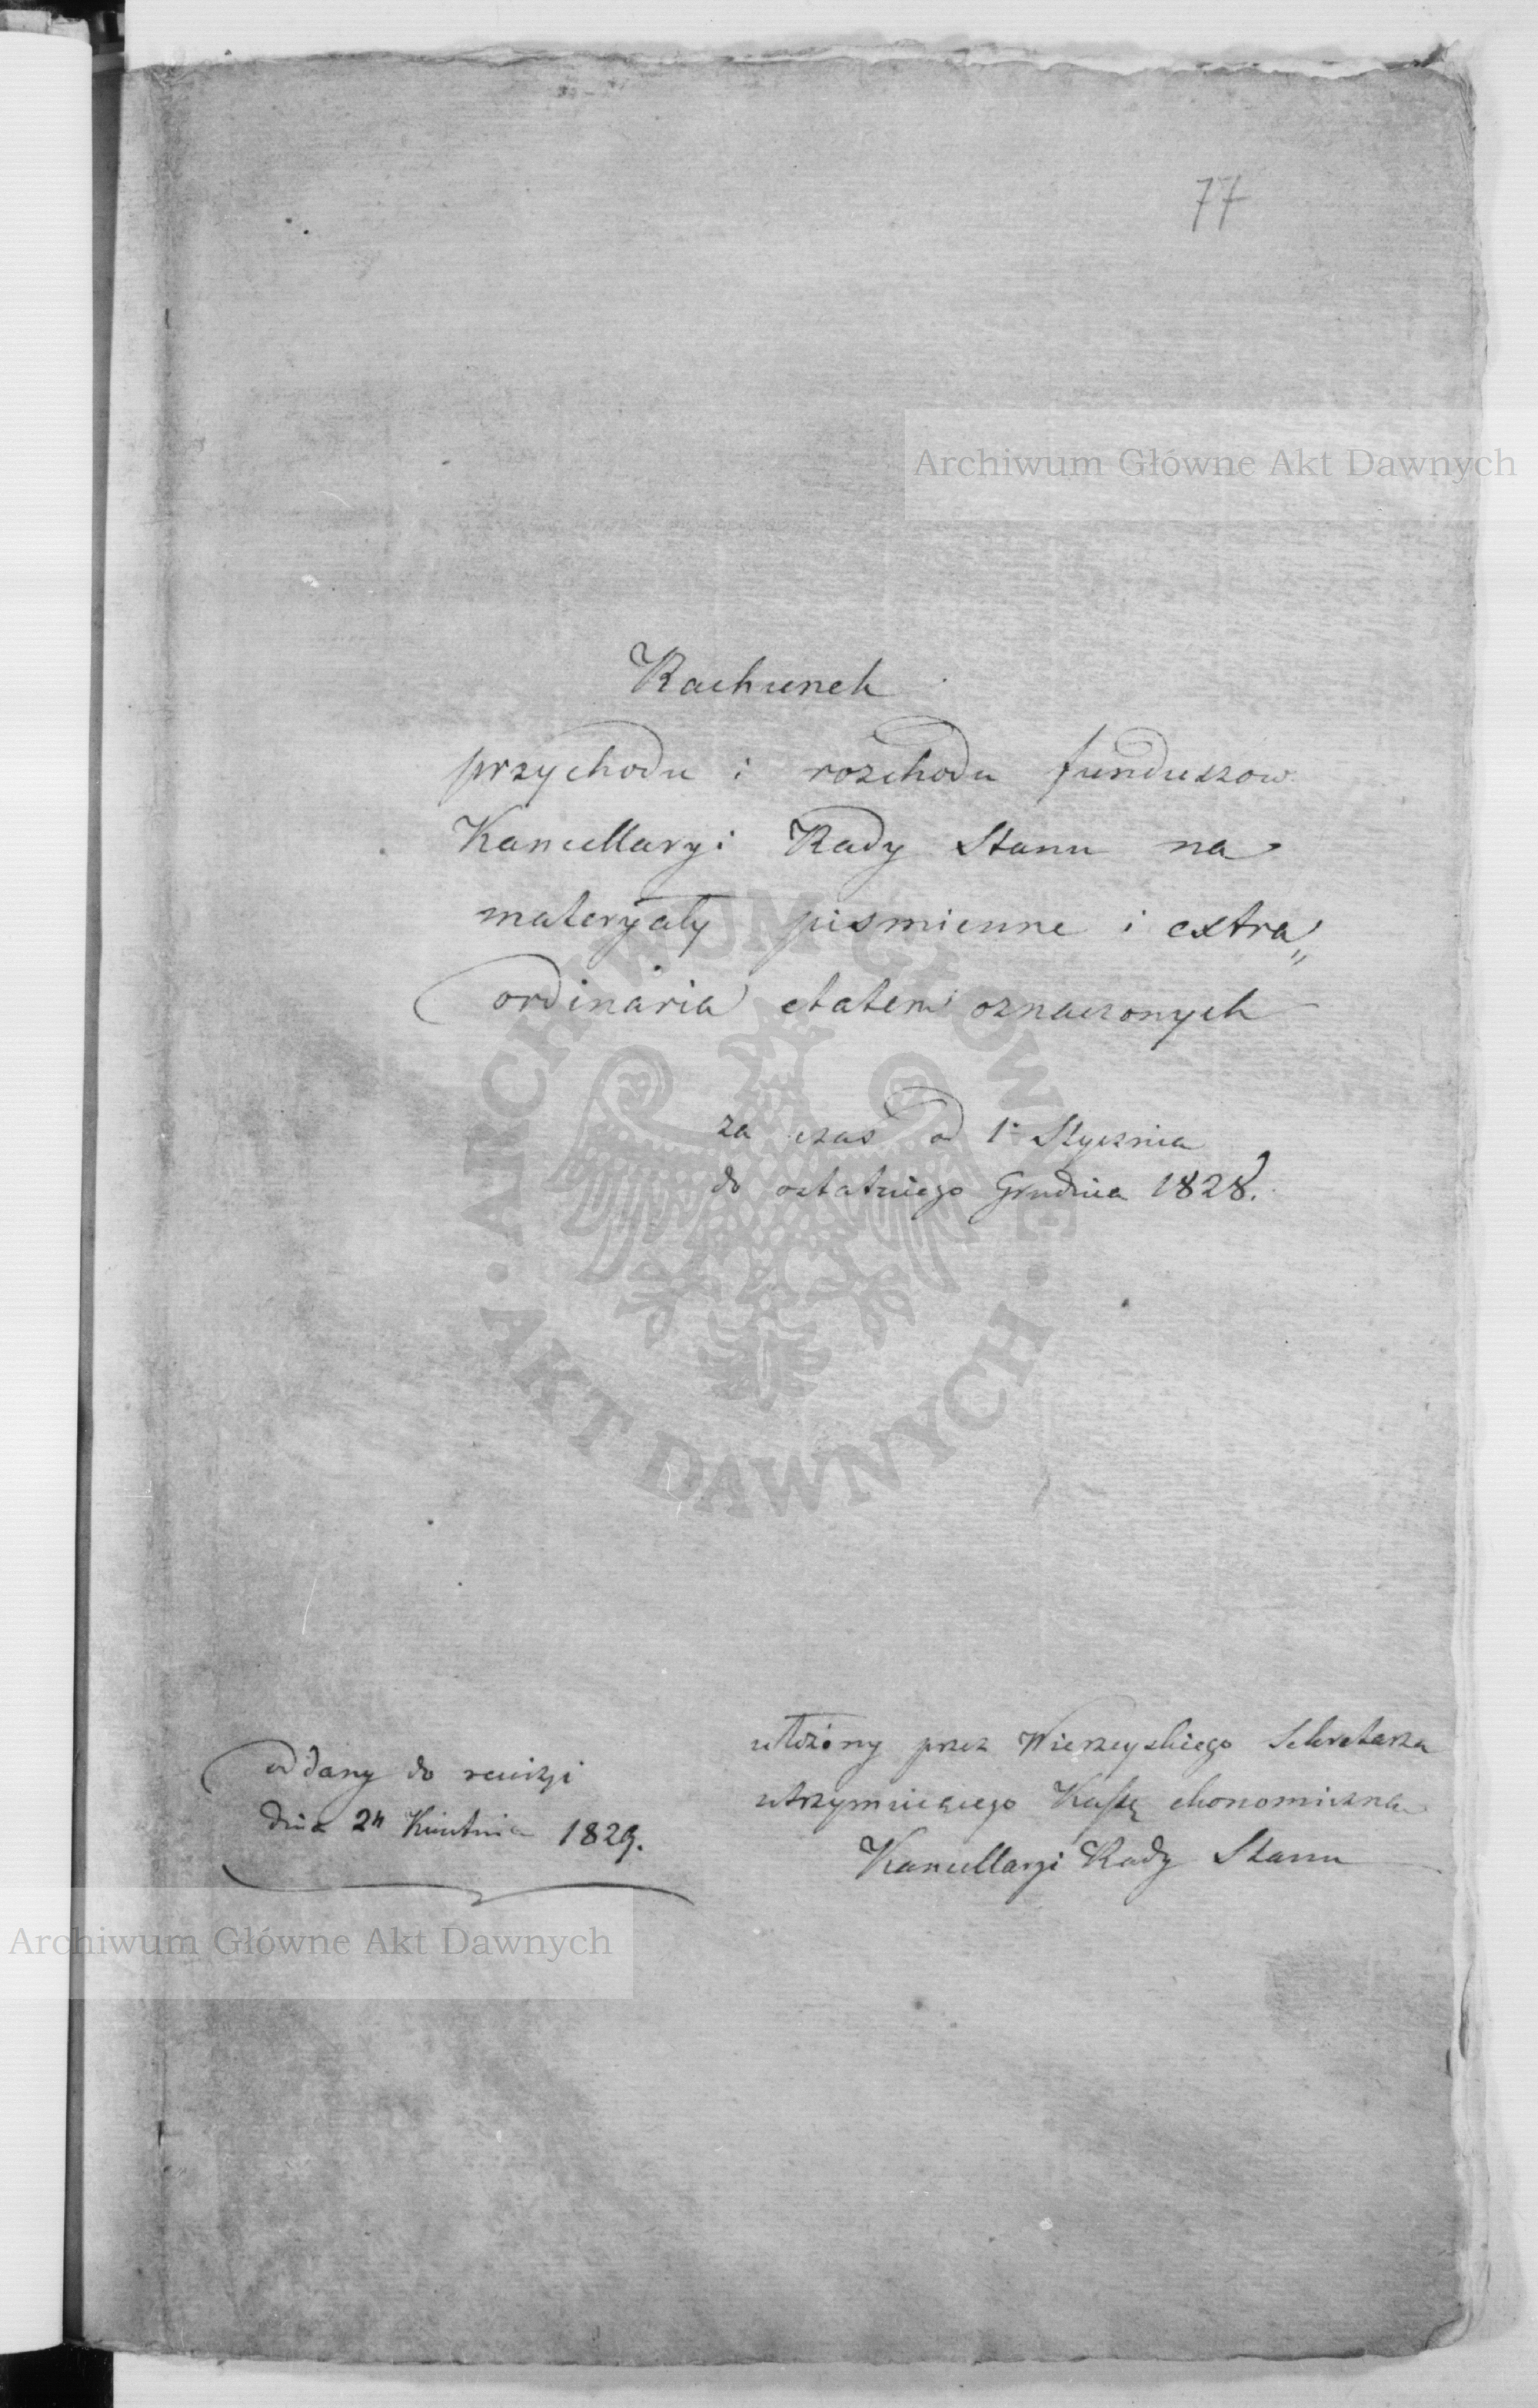 77
Archiwum Główne Akt Dawnych
Rachunek
przychodu i rozchodu funduszow
Kancellaryi Rady Stanu na
materyały piśmienne i extra„
ordinaria etatem oznaczonych
za czas od 1º Stycznia
do ostatniego Grudnia 1828.
ARCHIWUM GŁÓWNE
· AKT DAWNYCH ·
ułożony przez Wierzeyskiego Sekretarza
utrzymuiącego Kassę ekonomiczną
Kancellaryi Rady Stanu
oddany do rewizyi
dnia 2n Kwietnia 1829.
Archiwum Główne Akt Dawnych